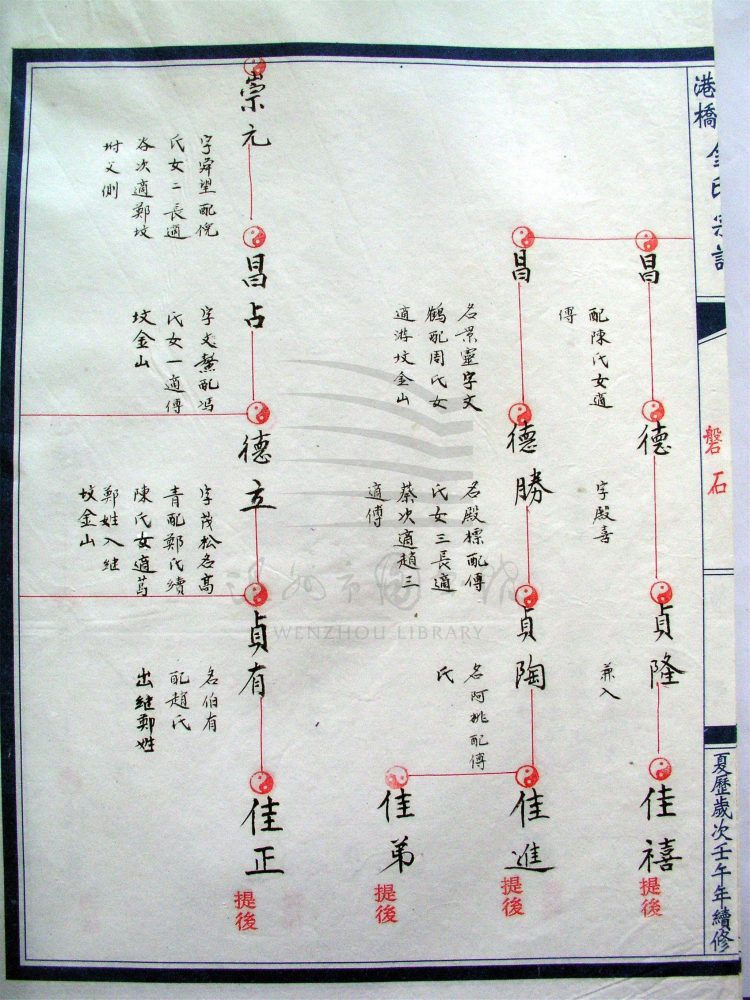 港橋金氏宗譜
磐石
夏歷歲次壬午年續修
昌
配陳氏女適
傅
德
字殿喜
貞隆
兼入
佳禧
提後
昌
名景靈字文
鶴配周氏女
適游坟金山
德勝
名殿標配傅
氏女三長適
蔡次適趙三
適傅
貞陶
名阿桃配傅
氏
佳進
提後
佳弟
提後
崇元
字舜望配倪
氏女二長適
谷次適鄭坟
坿父側
昌占
字文鰲配馮
氏女一適傅
坟金山
德立
字茂松名高
青配鄭氏續
陳氏女適葛
鄭姓入継
坟金山
貞有
名伯有
配趙氏
出継鄭姓
佳正
提後
WENZHOU LIBRARY